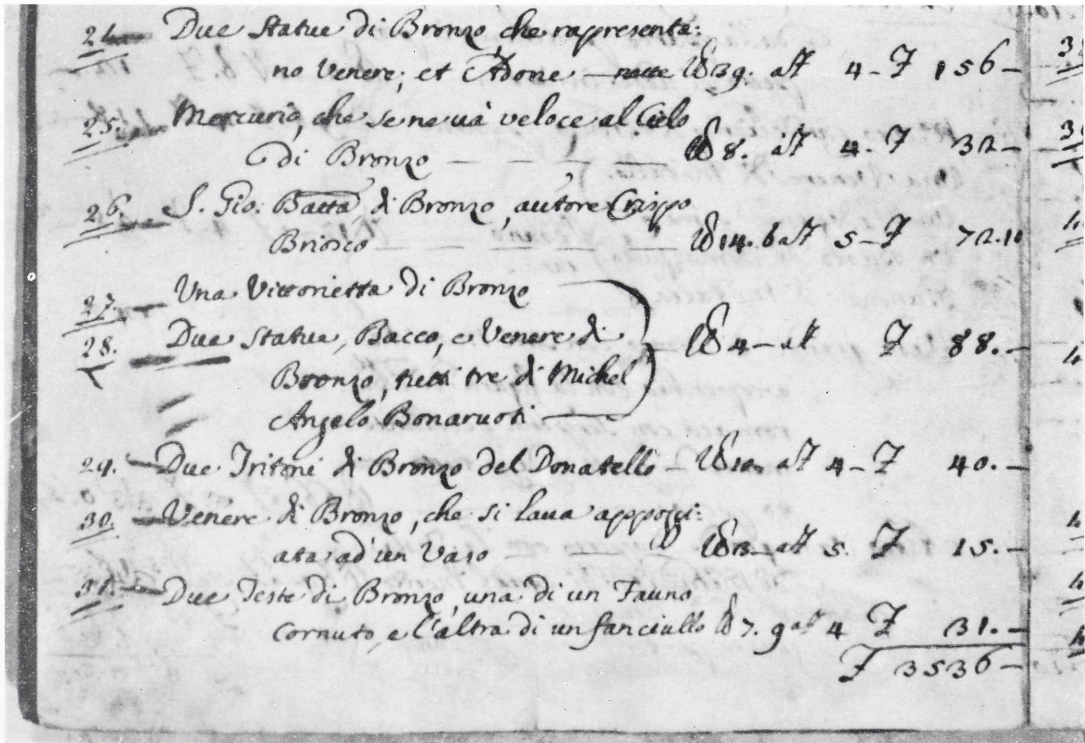 24. Due Statue di Bronzo, che rapresenta:
no Venere, et Adone — nette lb 39. a f 4 - f 156 -
25. Mercurio, che se ne uà veloce al Cielo
di Bronzo — — — lb 8. a f 4. f 32 -
26. S. Gio: Batta di Bronzo, autore Crispo
Briosco — — lb 14. 6 a f 5 - f 72.10
27. Una Vittorietta di Bronzo
28. Due Statue, Bacco, e Venere di lb 4 - a f f 88. -
Bronzo, tutti tre di Michel
Angelo Bonaruoti
29. Due Tritoni di Bronzo del Donatello - lb 10. a f 4 - f 40. -
30. Venere di Bronzo, che si laua appoggi:
ata ad un Vaso a f 5. f 15. -
31. Due Teste di Bronzo, una di un Fauno
Cornuto, e l'altra di un fanciullo lb 7. 9 a f 4 f 31. -
f 3536 -